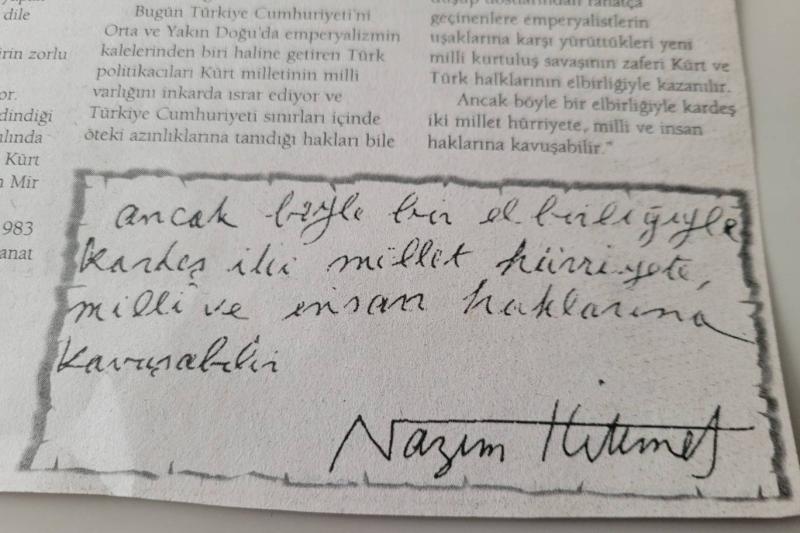 dile
irin zorlu
or.
dindiği
ılında
Kürt
n Mir
983
anat
Bugün Türkiye Cumhuriyeti'ni
Orta ve Yakın Doğu'da emperyalizmin
kalelerinden biri haline getiren Türk
politikacıları Kürt milletinin milli
varlığını inkarda ısrar ediyor ve
Türkiye Cumhuriyeti sınırları içinde
öteki azınlıklarına tanıdığı hakları bile
geçinenlere emperyalistlerin
uşaklarına karşı yürüttükleri yeni
milli kurtuluş savaşının zaferi Kürt ve
Türk halklarının elbirliğiyle kazanılır.
Ancak böyle bir elbirliğiyle kardeş
iki millet hürriyete, milli ve insan
haklarına kavuşabilir."
ancak böyle bir el birliğiyle
kardeş iki millet hürriyete,
millî ve insan haklarına
kavuşabilir
Nazım Hikmet